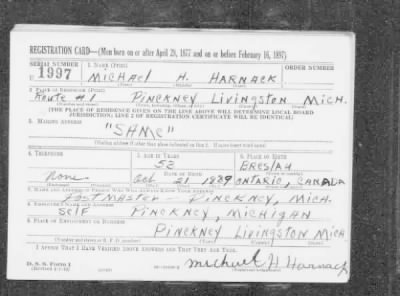 REGISTRATION CARD—(Men born on or after April 28, 1877 and on or before February 16, 1897)
SERIAL NUMBER 1. NAME (Print) ORDER NUMBER
U 1997 MICHAEL H. HARNACK
2. PLACE OF RESIDENCE (Print)
Route #1 PINCKNEY LIVINGSTON MICH.
(THE PLACE OF RESIDENCE GIVEN ON THE LINE ABOVE WILL DETERMINE LOCAL BOARD
JURISDICTION; LINE 2 OF REGISTRATION CERTIFICATE WILL BE IDENTICAL)
3. MAILING ADDRESS
"SAME"
[Mailing address if other than place indicated on line 2. If same insert word same]
4. TELEPHONE 5. AGE IN YEARS 6. PLACE OF BIRTH
53 BRESLAU
DATE OF BIRTH
None Oct. 21 1889 ONTARIO, CANADA
7. NAME AND ADDRESS OF PERSON WHO WILL ALWAYS KNOW YOUR ADDRESS
POSTMASTER — PINCKNEY, MICH.
8. EMPLOYER'S NAME AND ADDRESS
SELF PINCKNEY, MICHIGAN
9. PLACE OF EMPLOYMENT OR BUSINESS
PINCKNEY LIVINGSTON MICH
I AFFIRM THAT I HAVE VERIFIED ABOVE ANSWERS AND THAT THEY ARE TRUE.
D. S. S. Form 1
Michael H Harnack